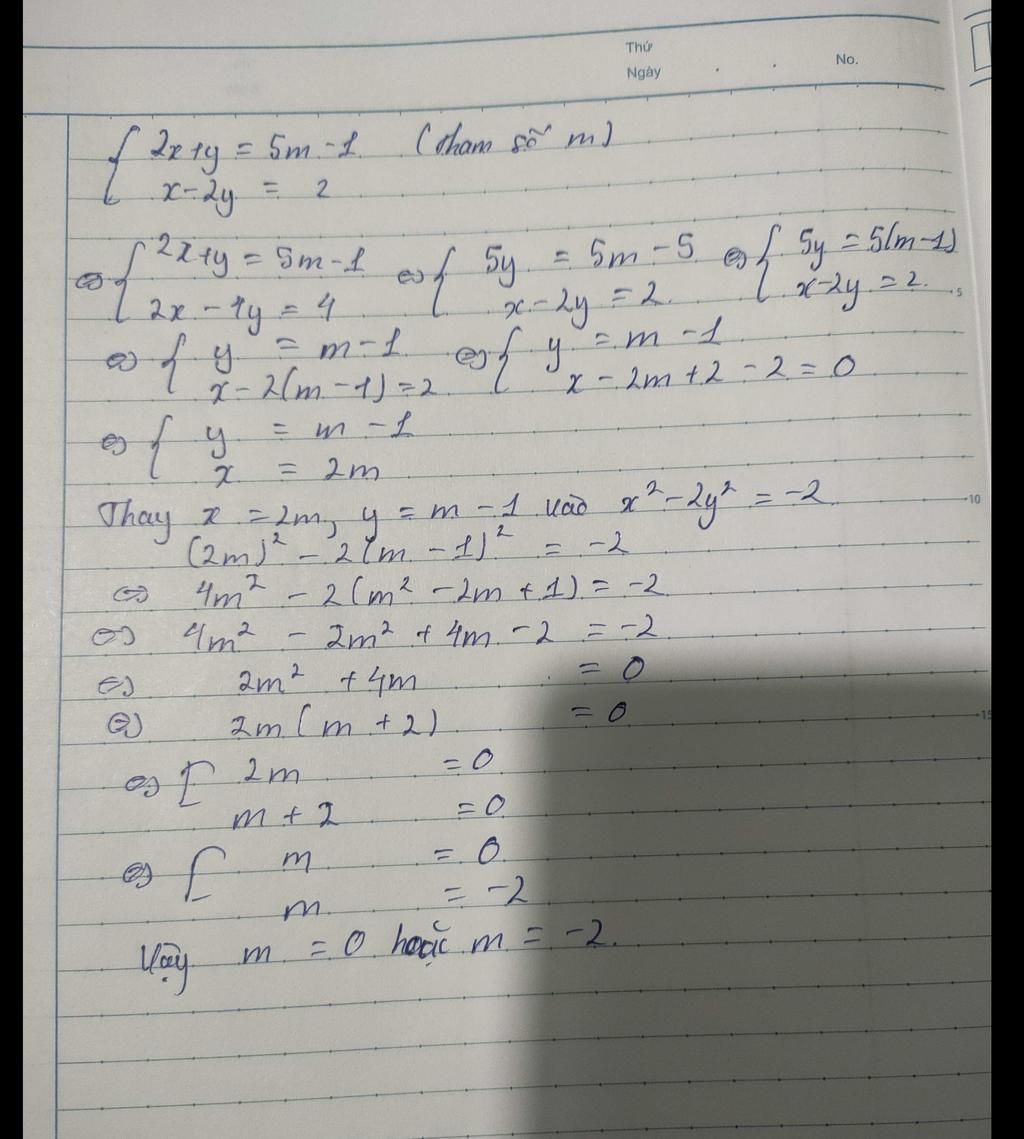 Thứ
Ngày . . No.
{ 2x+y = 5m-1 (tham số m)
x-2y = 2
⇔ { 2x+y = 5m-1 ⇔ { 5y = 5m-5 ⇔ { 5y = 5(m-1)
2x-4y = 4 x-2y = 2 x-2y = 2 5
⇔ { y = m-1 ⇔ { y = m-1
x-2(m-1) = 2 x-2m+2-2 = 0
⇔ { y = m-1
x = 2m
Thay x = 2m, y = m-1 vào x² - 2y² = -2 10
(2m)² - 2(m-1)² = -2
⇔ 4m² - 2(m² - 2m + 1) = -2
⇔ 4m² - 2m² + 4m - 2 = -2
⇔ 2m² + 4m = 0
⇔ 2m(m+2) = 0 15
⇔ [ 2m = 0
m + 2 = 0
⇔ [ m = 0
m = -2
Vậy m = 0 hoặc m = -2.